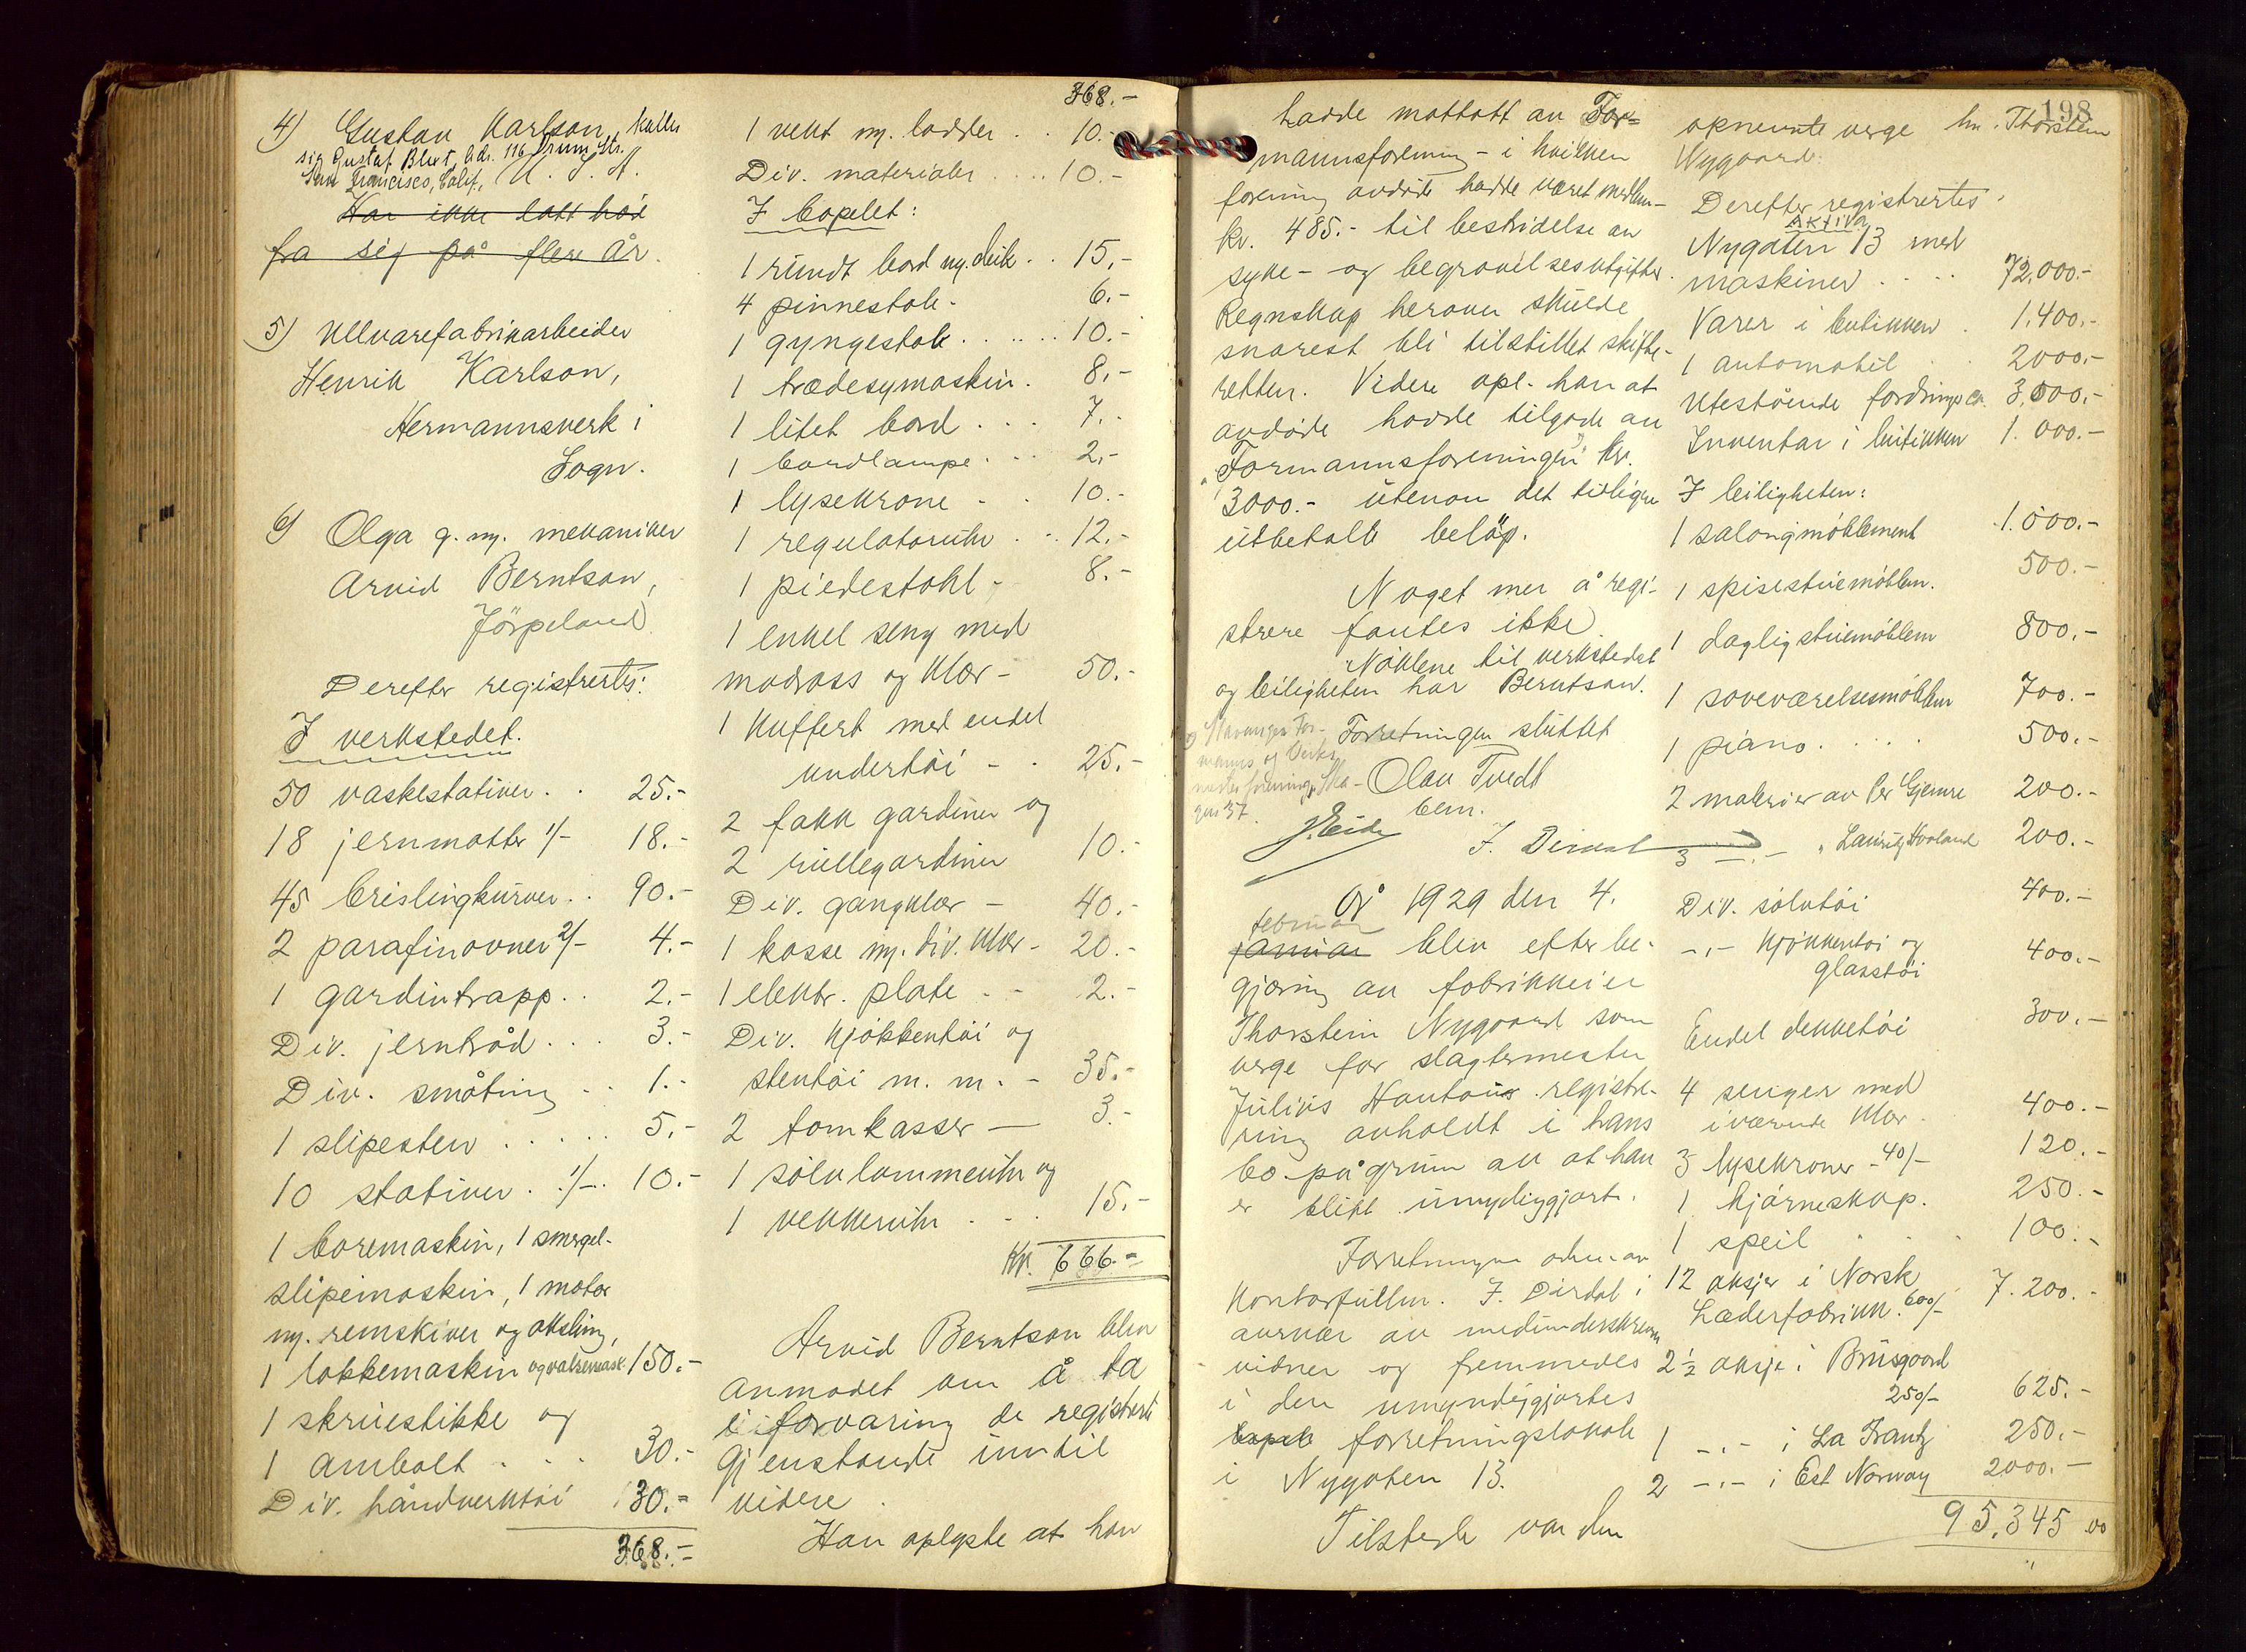 4) Gustav Karlson, kaller
sig Gustaf Blixt, adr. 116 Drum Str.
San Francisco, Calif., U. S. A.
Har ikke latt høre
fra sig på flere år.
5) Ullvarefabrikarbeider
Henrik Karlson,
Hermannsverk i
Sogn.
6) Olga g. m. mekaniker
Arvid Berntson,
Jörpeland
Derefter registrertes:
I verkstedet.
50 vaskestativer . . 25.-
18 jernmatter 1/- 18.-
45 brislingkurver . . 90.-
2 parafinovner 2/- 4.-
1 gardintrapp . . 2.-
Div. jerntråd . . . 3.-
Div. småting . . 1.-
1 slipesten . . . . . 5.-
10 stativer . 1/- . 10.-
1 boremaskin, 1 smergel-
slipemaskin, 1 motor
m. remskiver og aksling,
1 lokkemaskin og valsemask. 150.-
1 skruestikke og
1 ambolt . . . 30.-
Div. håndverktøi 30.-
368.-
368.-
1 vekt m. lodder . . 10.-
Div. materialer . . . . 10.-
I kapelet:
1 rundt bord m. duk . . 15,-
4 pinnestole - 6.-
1 gyngestol . . . . . . 10.-
1 trædesymaskin . 8,-
1 litet bord . . . 7.-
1 bordlampe . . . 2,-
1 lysekrone - . 10.-
1 regulatoruhr . . . 12.-
1 piedestahl - 8.-
1 enkel seng med
madrass og klær - 50.-
1 kuffert med endel
undertøi - . 25.-
2 fakk gardiner og
2 rullegardiner 10.-
Div. gangklær - 40.-
1 kasse m. div. klær - 20.-
1 elektr. plate - - 2.-
Div. kjøkkentøi og
stentøi m. m. - 35.-
2 tomkasser — 3.-
1 sølvlommeuhr og
1 vekkeruhr . - . 15.-
Kr. 666.-
Arvid Berntson blev
anmodet om å ta
i forvaring de registrerte
gjenstande inntil
videre.
Han oplyste at han
198
hadde mottatt av For-
mannsforening - i hvilken
forening avdøde hadde været medlem -
kr. 485.- til bestridelse av
syke- og begravelsesutgifter.
Regnskap herover skulde
snarest bli tilstillet skifte-
retten. Videre opl. han at
avdøde hadde tilgode av
"Formannsforeningen" kr.
3000.- utenom det tidligere
utbetalte beløp.
Noget mer å regi-
strere fantes ikke.
Nøklene til verkstedet
og leiligheten har Berntson.
Forretningen sluttet
Stavanger For-
manns og Verks-
mester forening, Ska-
gen 37.
Olav Tvedt
bem.
J. Eide
J. Dirdal
År 1929 den 4.
februar
januar blev efter be-
gjæring av fabrikkeier
Thorstein Nygaard som
verge for slagtermester
Julius registre-
ring avholdt i hans
bo på grunn av at han
er blitt umyndiggjort.
Forretningen adm. av
kontorfullm. J. Dirdal i
nærvær av medunderskrevne
vidner og fremmedes
i den umyndiggjortes
bopel forretningslokale
i Nygaten 13.
Tilstede var den
opnevnte verge hr. Thorstein
Nygaard.
Derefter registrertes:
Aktiva
Nygaten 13 med
maskiner . . . . 72,000.-
Varer i butikken . 1.400.-
1 automobil . . 2000.-
Utestående fordringer ca. 3,000.-
Inventar i butikken 1.000.-
I leiligheten:
1 salongmøblement 1.000.-
1 spisestuemøblem. 500.-
1 dagligstuemøblem 800.-
1 soveværelsesmøblem 700.-
1 piano . . . . 500.-
2 malerier av Per Gjemre 200.-
3 -„- „ Lauritz Haaland 200.-
Div. sølvtøi 400.-
-„- kjøkkentøi og
glasstøi 400.-
Endel dekketøi 300.-
4 senger med
iværende klær . 400.-
3 lysekroner - 40/- 120.-
1 hjørneskap. 250.-
1 speil . . . 100.-
12 aksjer i Norsk
Læderfabrikk. 600/- 7.200.-
2 ½ aksje i Brusgaard
250/- 625.-
1 -„- i La Frantz 250.-
2 -„- i Est Norway 2000.-
95,345.00